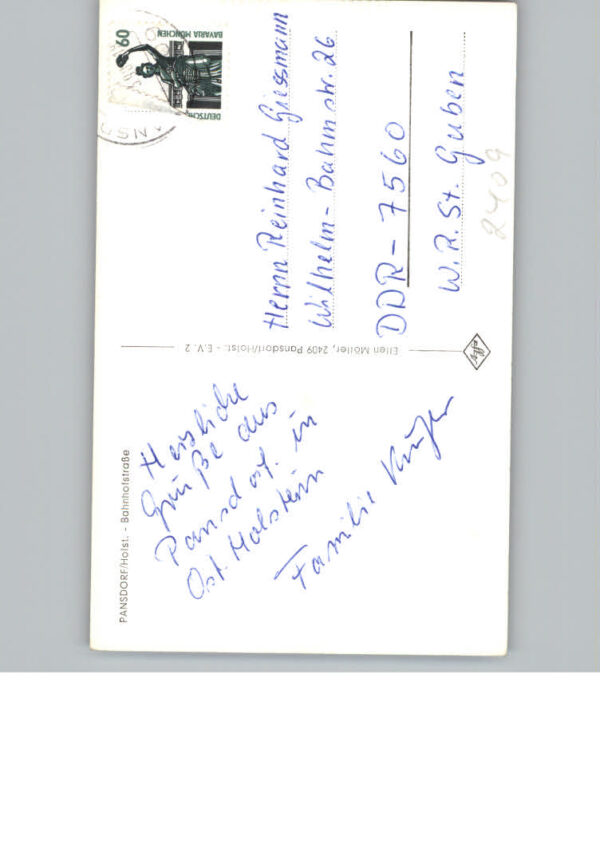 PANSDORF/Holst. - Bahnhofstraße
Herzliche
Grüße aus
Pansdorf in
Ost. Holstein
Familie Krüger
Ellen Möller, 2409 Pansdorf/Holst. - E.V. 2
60
BAVARIA MÜNCHEN
DEUTSCHE
Herrn Reinhard Giessmann
Wilhelm-Bahnstr. 26
DDR-7560
W.P. St. Guben
2409